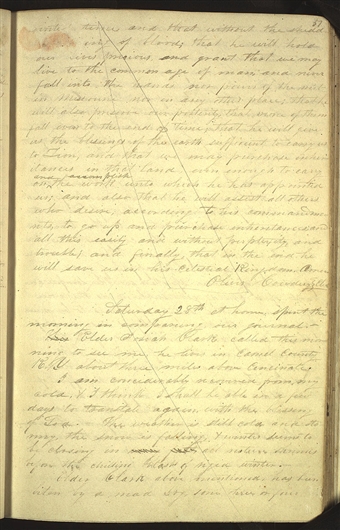 57
into trouble and that without the shedd
ing of blood; that he will hold
our lives precious, and grant that we may
live to the common age of man and never
fall into the hands nor power of the mob
in Missouri nor in any other place; that he
will also preserve our posterity that none of them
fall even to the end of time; that he will give
us the blessings of the earth sufficient to carry us
to Zion, and that we may purchase inher-
itances in that land even enough to carry
on and accomplish
the work unto which he has appointed
us; and also that he will assist all others
who desire, according to his commandme
nts, to go up and purchase inheritances and
all this easily and without perplexity and
trouble; and finally, that in the end he
will save us in his Celestial Kingdom. Amen.
Oliver Cowdery
Saturday 28th at home, spent the
morning in comparing our journal.
Elder Josiah Clark called this mor
ning to see me, he lives in Camel County
K.Y. about three miles above Cincinnati.
I am considerably recovered from my
cold, & I think I shall be able in a few
days to translate again, with the blessing
of God. The weather is still cold and sto
rmy, the snow is falling, & winter seems to
be closing in all nature shrinks
before the chilling blasts of rigid winter.
Elder Clark above mentioned, has been
bitten by a mad dog, some three or four